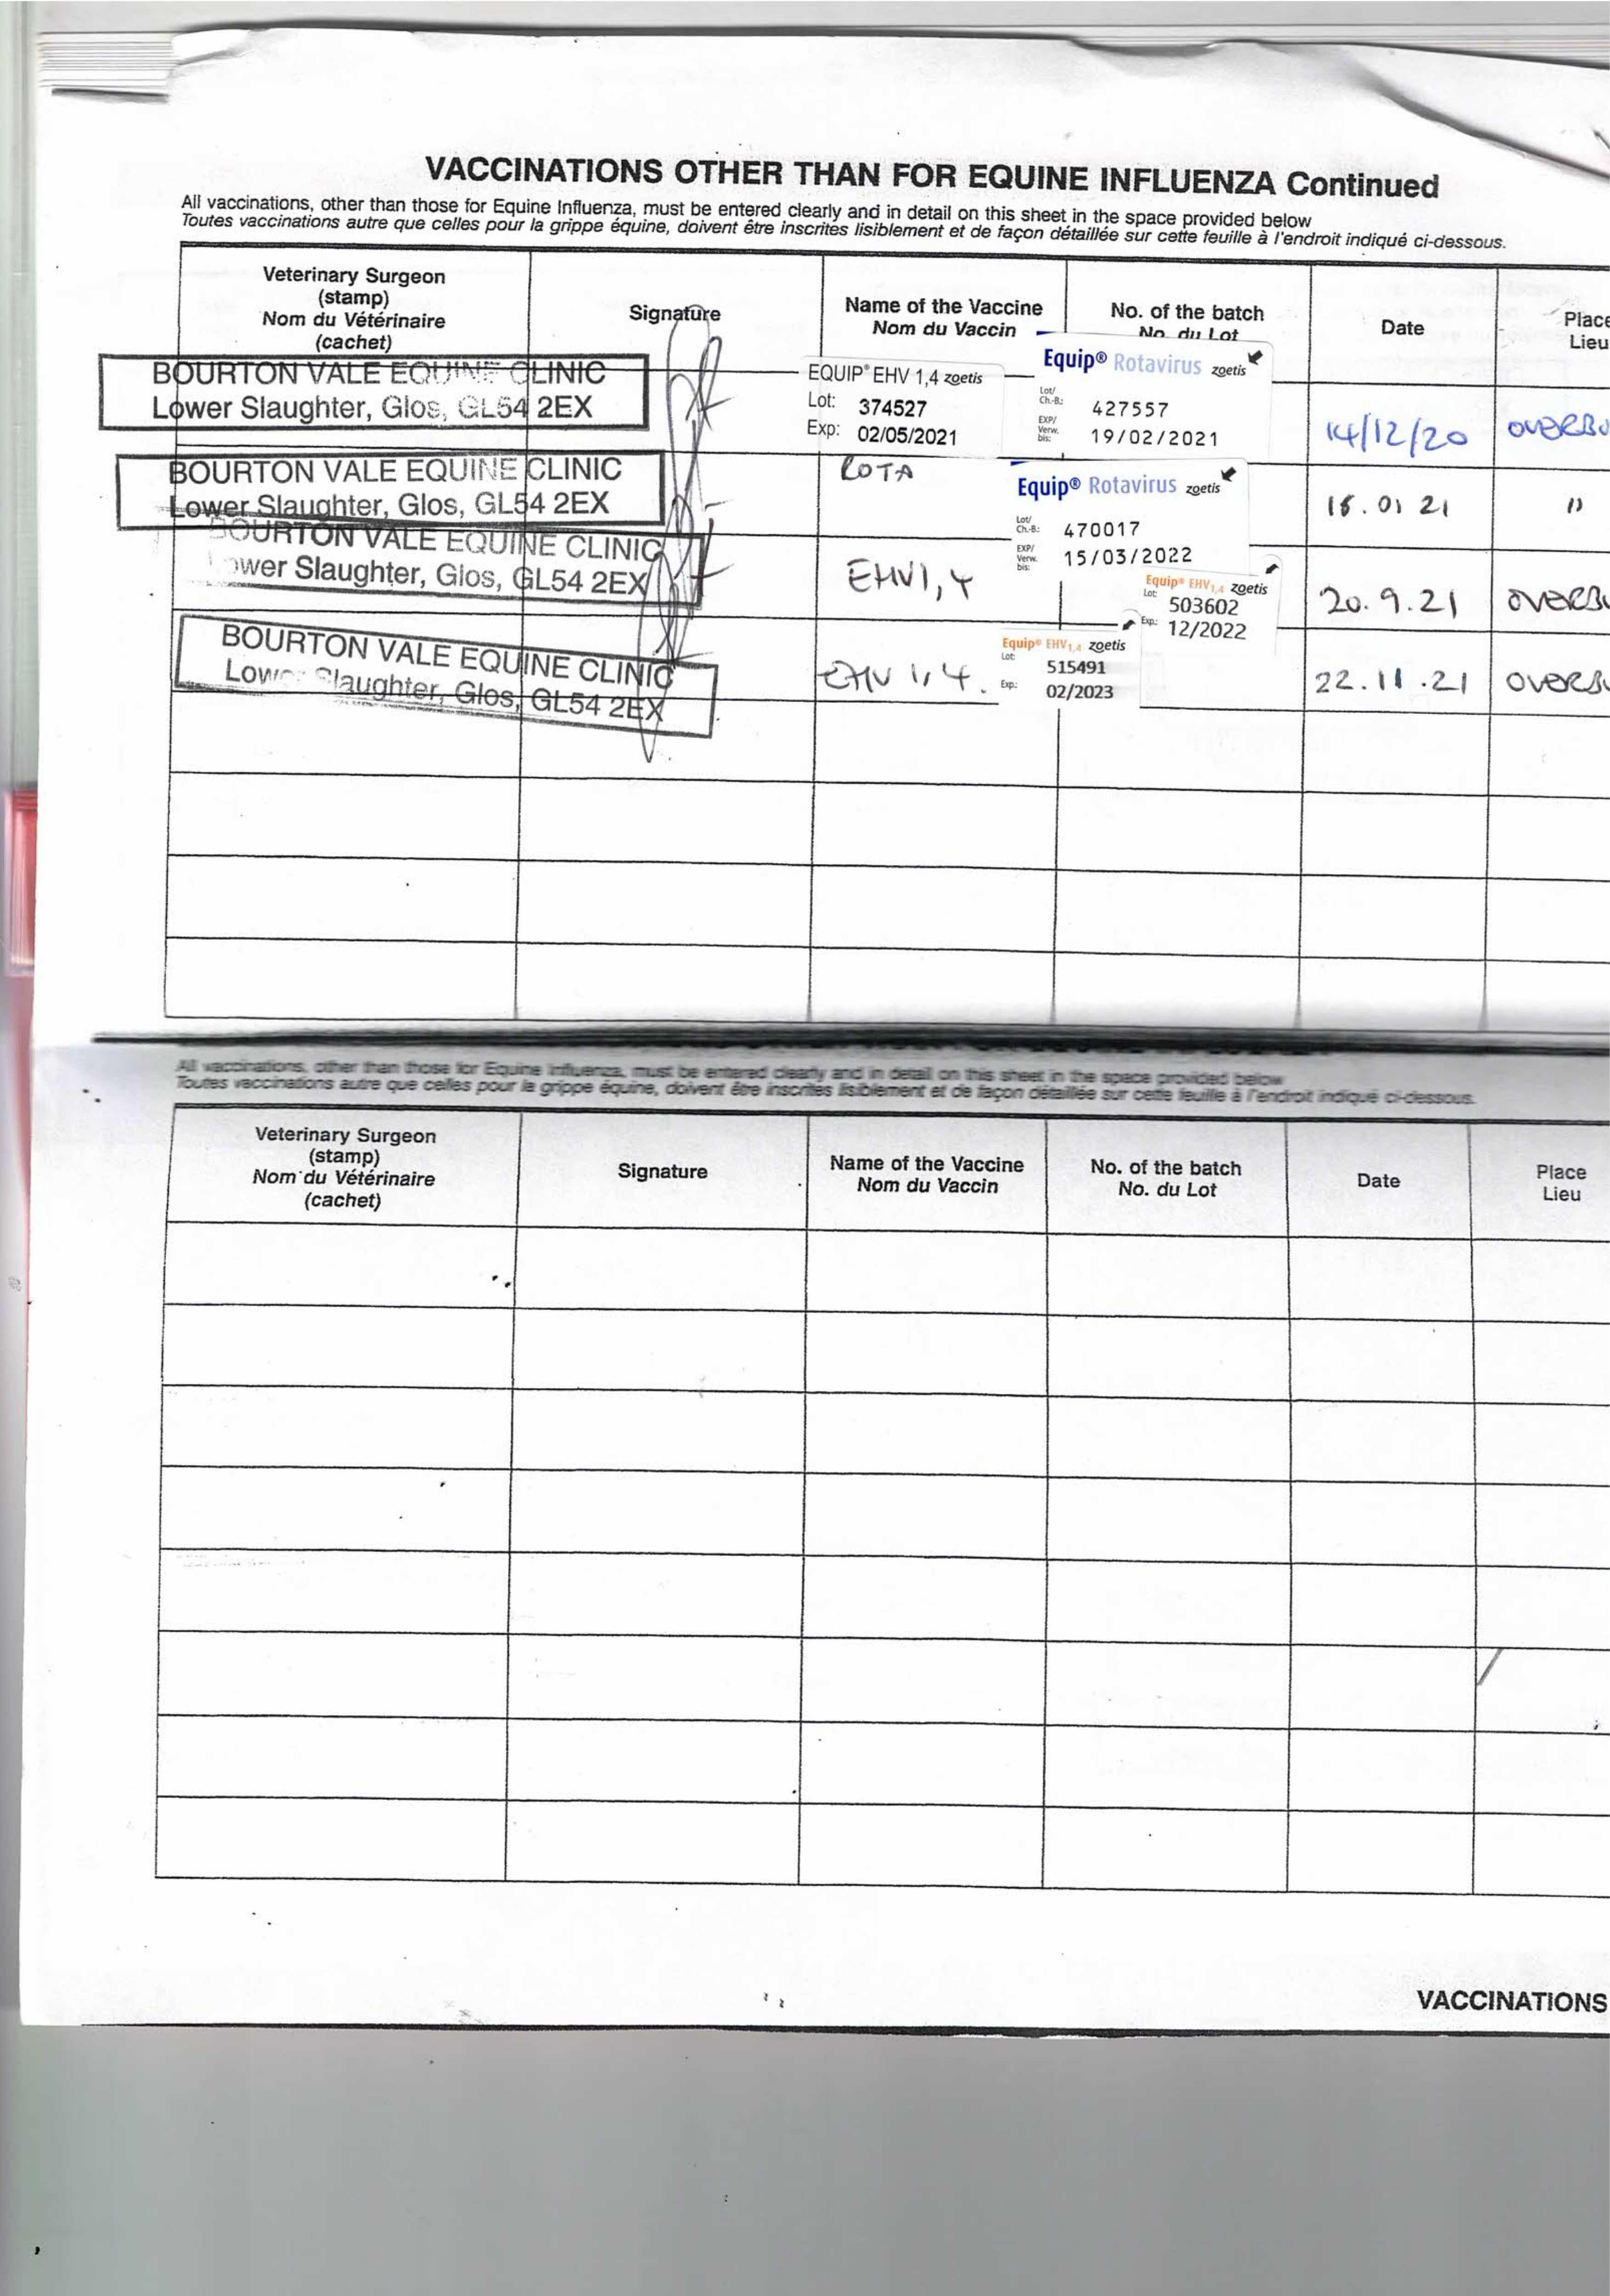 VACCINATIONS OTHER THAN FOR EQUINE INFLUENZA Continued
All vaccinations, other than those for Equine Influenza, must be entered clearly and in detail on this sheet in the space provided below
Toutes vaccinations autre que celles pour la grippe équine, doivent être inscrites lisiblement et de façon détaillée sur cette feuille à l'endroit indiqué ci-dessous.
Veterinary Surgeon
(stamp)
Nom du Vétérinaire
(cachet)
Signature
Name of the Vaccine
Nom du Vaccin
No. of the batch
No. du Lot
Date
Place
Lieu
BOURTON VALE EQUINE CLINIC
Lower Slaughter, Glos, GL54 2EX
EQUIP® EHV 1,4 zoetis
Lot: 374527
Exp: 02/05/2021
Equip® Rotavirus zoetis
Lot/
Ch.-B.: 427557
EXP/
Verw.
bis: 19/02/2021
14/12/20
OVERBU
BOURTON VALE EQUINE CLINIC
Lower Slaughter, Glos, GL54 2EX
ROTA
Equip® Rotavirus zoetis
Lot/
Ch.-B.: 470017
EXP/
Verw.
bis: 15/03/2022
01 21
"
BOURTON VALE EQUINE CLINIC
ower Slaughter, Glos, GL54 2EX
EHV1,4
Equip® EHV1,4 zoetis
Lot: 503602
Exp.: 12/2022
20.9.21
OVERBU
BOURTON VALE EQUINE CLINIC
Lower Slaughter, Glos, GL54 2EX
EHV 1,4.
Equip® EHV1,4 zoetis
Lot: 515491
Exp.: 02/2023
22.11.21
OVERBU
All vaccinations, other than those for Equine Influenza, must be entered clearly and in detail on this sheet in the space provided below
Toutes vaccinations autre que celles pour la grippe équine, doivent être inscrites lisiblement et de façon détaillée sur cette feuille à l'endroit indiqué ci-dessous.
Veterinary Surgeon
(stamp)
Nom du Vétérinaire
(cachet)
Signature
Name of the Vaccine
Nom du Vaccin
No. of the batch
No. du Lot
Date
Place
Lieu
VACCINATIONS